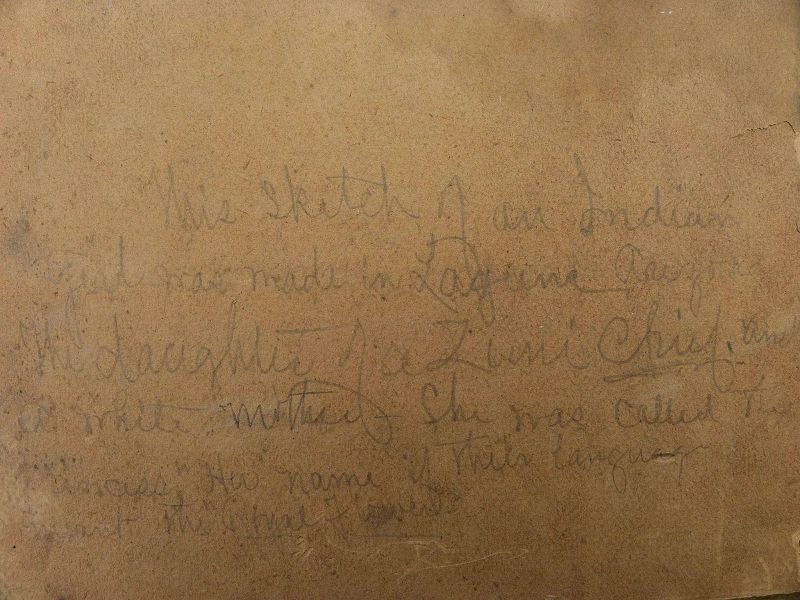 This Sketch of an Indian
girl was made in Laguna Arizona
The daughter of a Zuni Chief, and
a white Mother - She was called The
Princess" Her name if their language
meant the